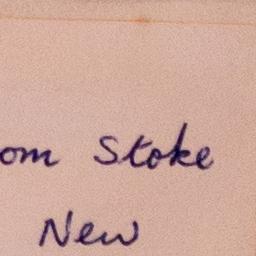 om Stoke
New